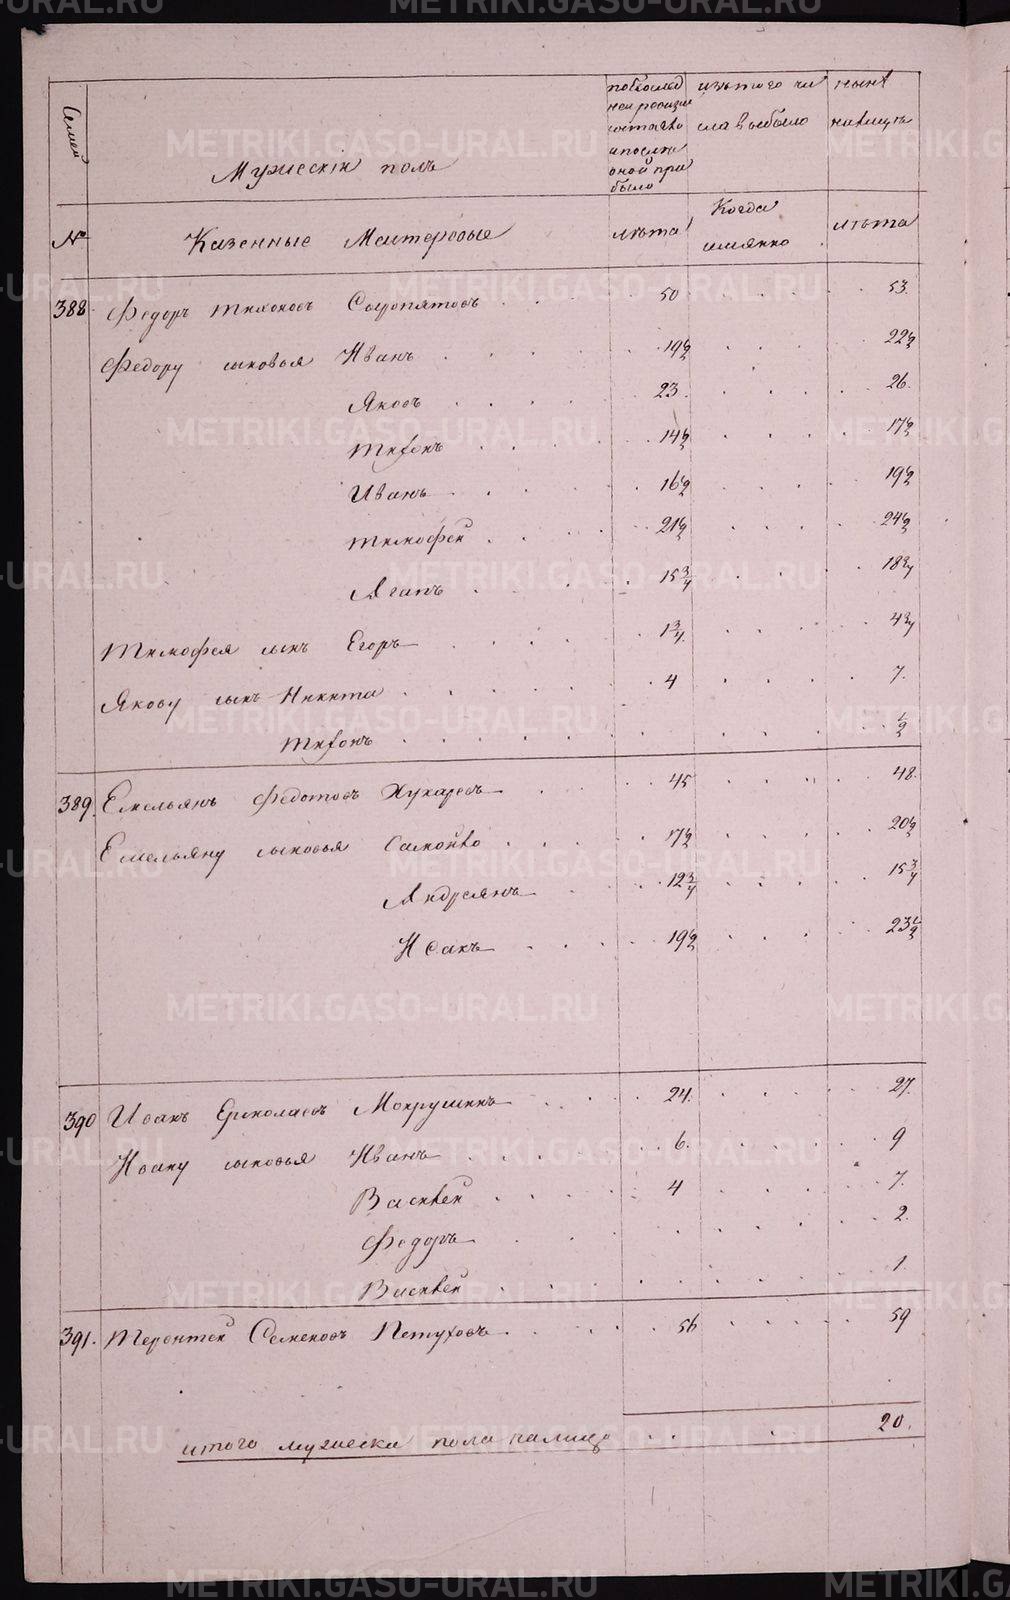 Семей
Мужескiй полъ
по последней ревизии состояло и после оной прибыло
изъ того числа выбыло
нынѣ налицѣ
№
Казенные Мастеровые
лѣта
Когда имянно
лѣта
388. Федоръ Тихоновъ Сыропятовъ 50 53.
Федору сыновья Иванъ 19½ 22½
Яковъ 23. 26.
Тихонъ 14½ 17½
Иванъ 16½ 19½
Тимофей 21½ 24½
Агапъ 15¾ 18¾
Тимофея сынъ Егоръ 1¾ 4¾
Якову сынъ Никита 4 7.
Тихонъ ½
389. Емельянъ Федотовъ Жукаревъ 45 48.
Емельяну сыновья Самойло 17½ 20½
Андреянъ 12¾ 15¾
Исакъ 19½ 23½
390 Иванъ Ермолаевъ Мокрушинъ 24. 27.
Ивану сыновья Иванъ 6. 9
Василей 4 7.
Федоръ 2.
Василей 1.
391. Терентей Семеновъ Петуховъ 56 59
итого мужеска пола налицо 20.
METRIKI.GASO-URAL.RU